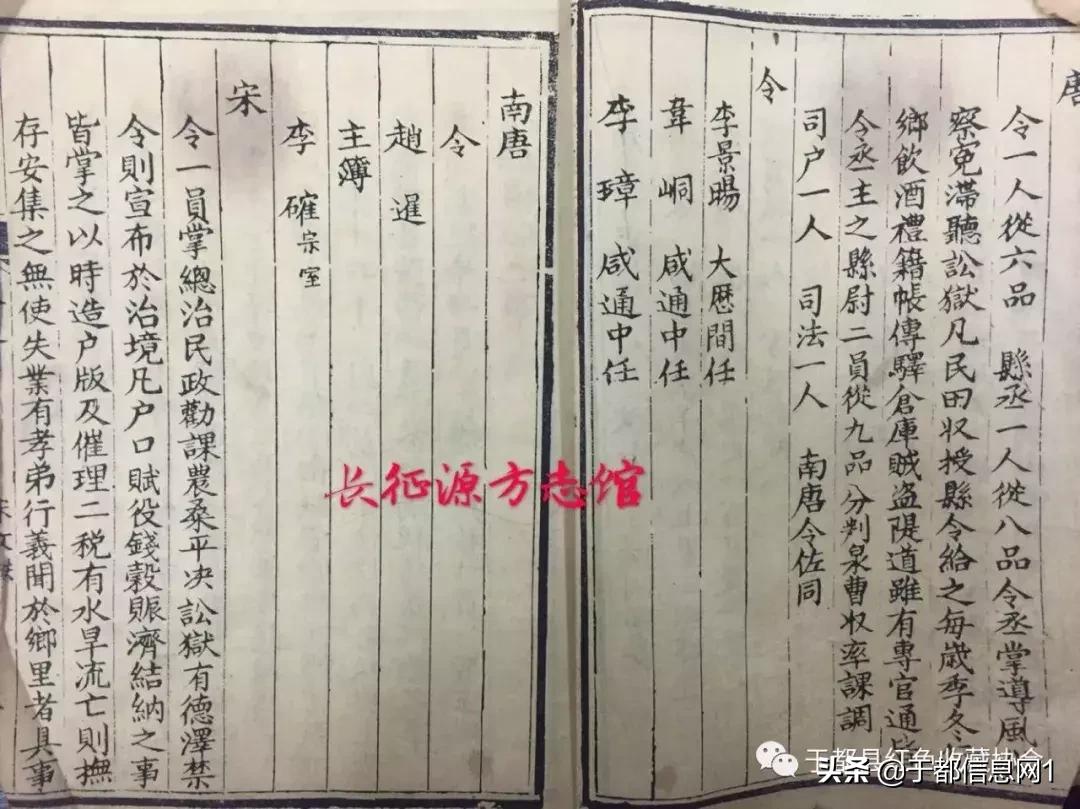 唐
令一人從六品 縣丞一人從八品令丞掌導風
察寃滯聽訟獄凡民田収授縣令給之每歲季冬
鄉飲酒禮籍帳傳驛倉庫賊盗隄道雖有專官通
令丞主之縣尉二員從九品分判泉曹収率課調
司户一人 司法一人 南唐令佐同
令
李景暘 大歷間任
韋峒 咸通中任
李璋 咸通中任
南唐
令
趙暹
主簿
李確宗室
宋
令一員掌總治民政勸課農桑平决訟獄有德澤禁
令則宣布於治境凡户口賦役錢穀賑濟結納之事
皆掌之以時造户版及催理二税有水旱流亡則撫
存安集之無使失業有孝弟行義聞於鄉里者具事
长征源方志馆
于都县红色收藏协会
头条@于都信息网1